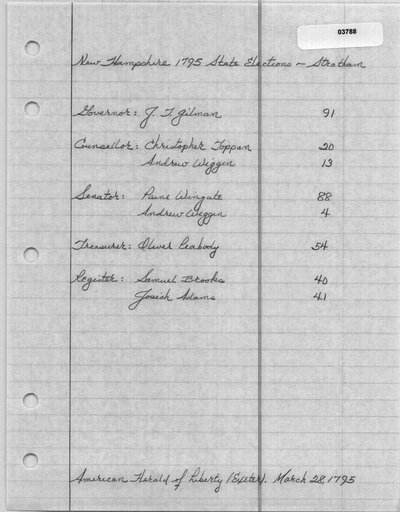 03788
New Hampshire 1795 State Elections - Stratham
Governor: J. T. Gilman 91
Counsellor: Christopher Toppan 20
Andrew Wiggin 13
Senator: Paine Wingate 88
Andrew Wiggin 4
Treasurer: Oliver Peabody 54
Register: Samuel Brooks 40
Josiah Adams 41
American Herald of Liberty (Exeter). March 28, 1795